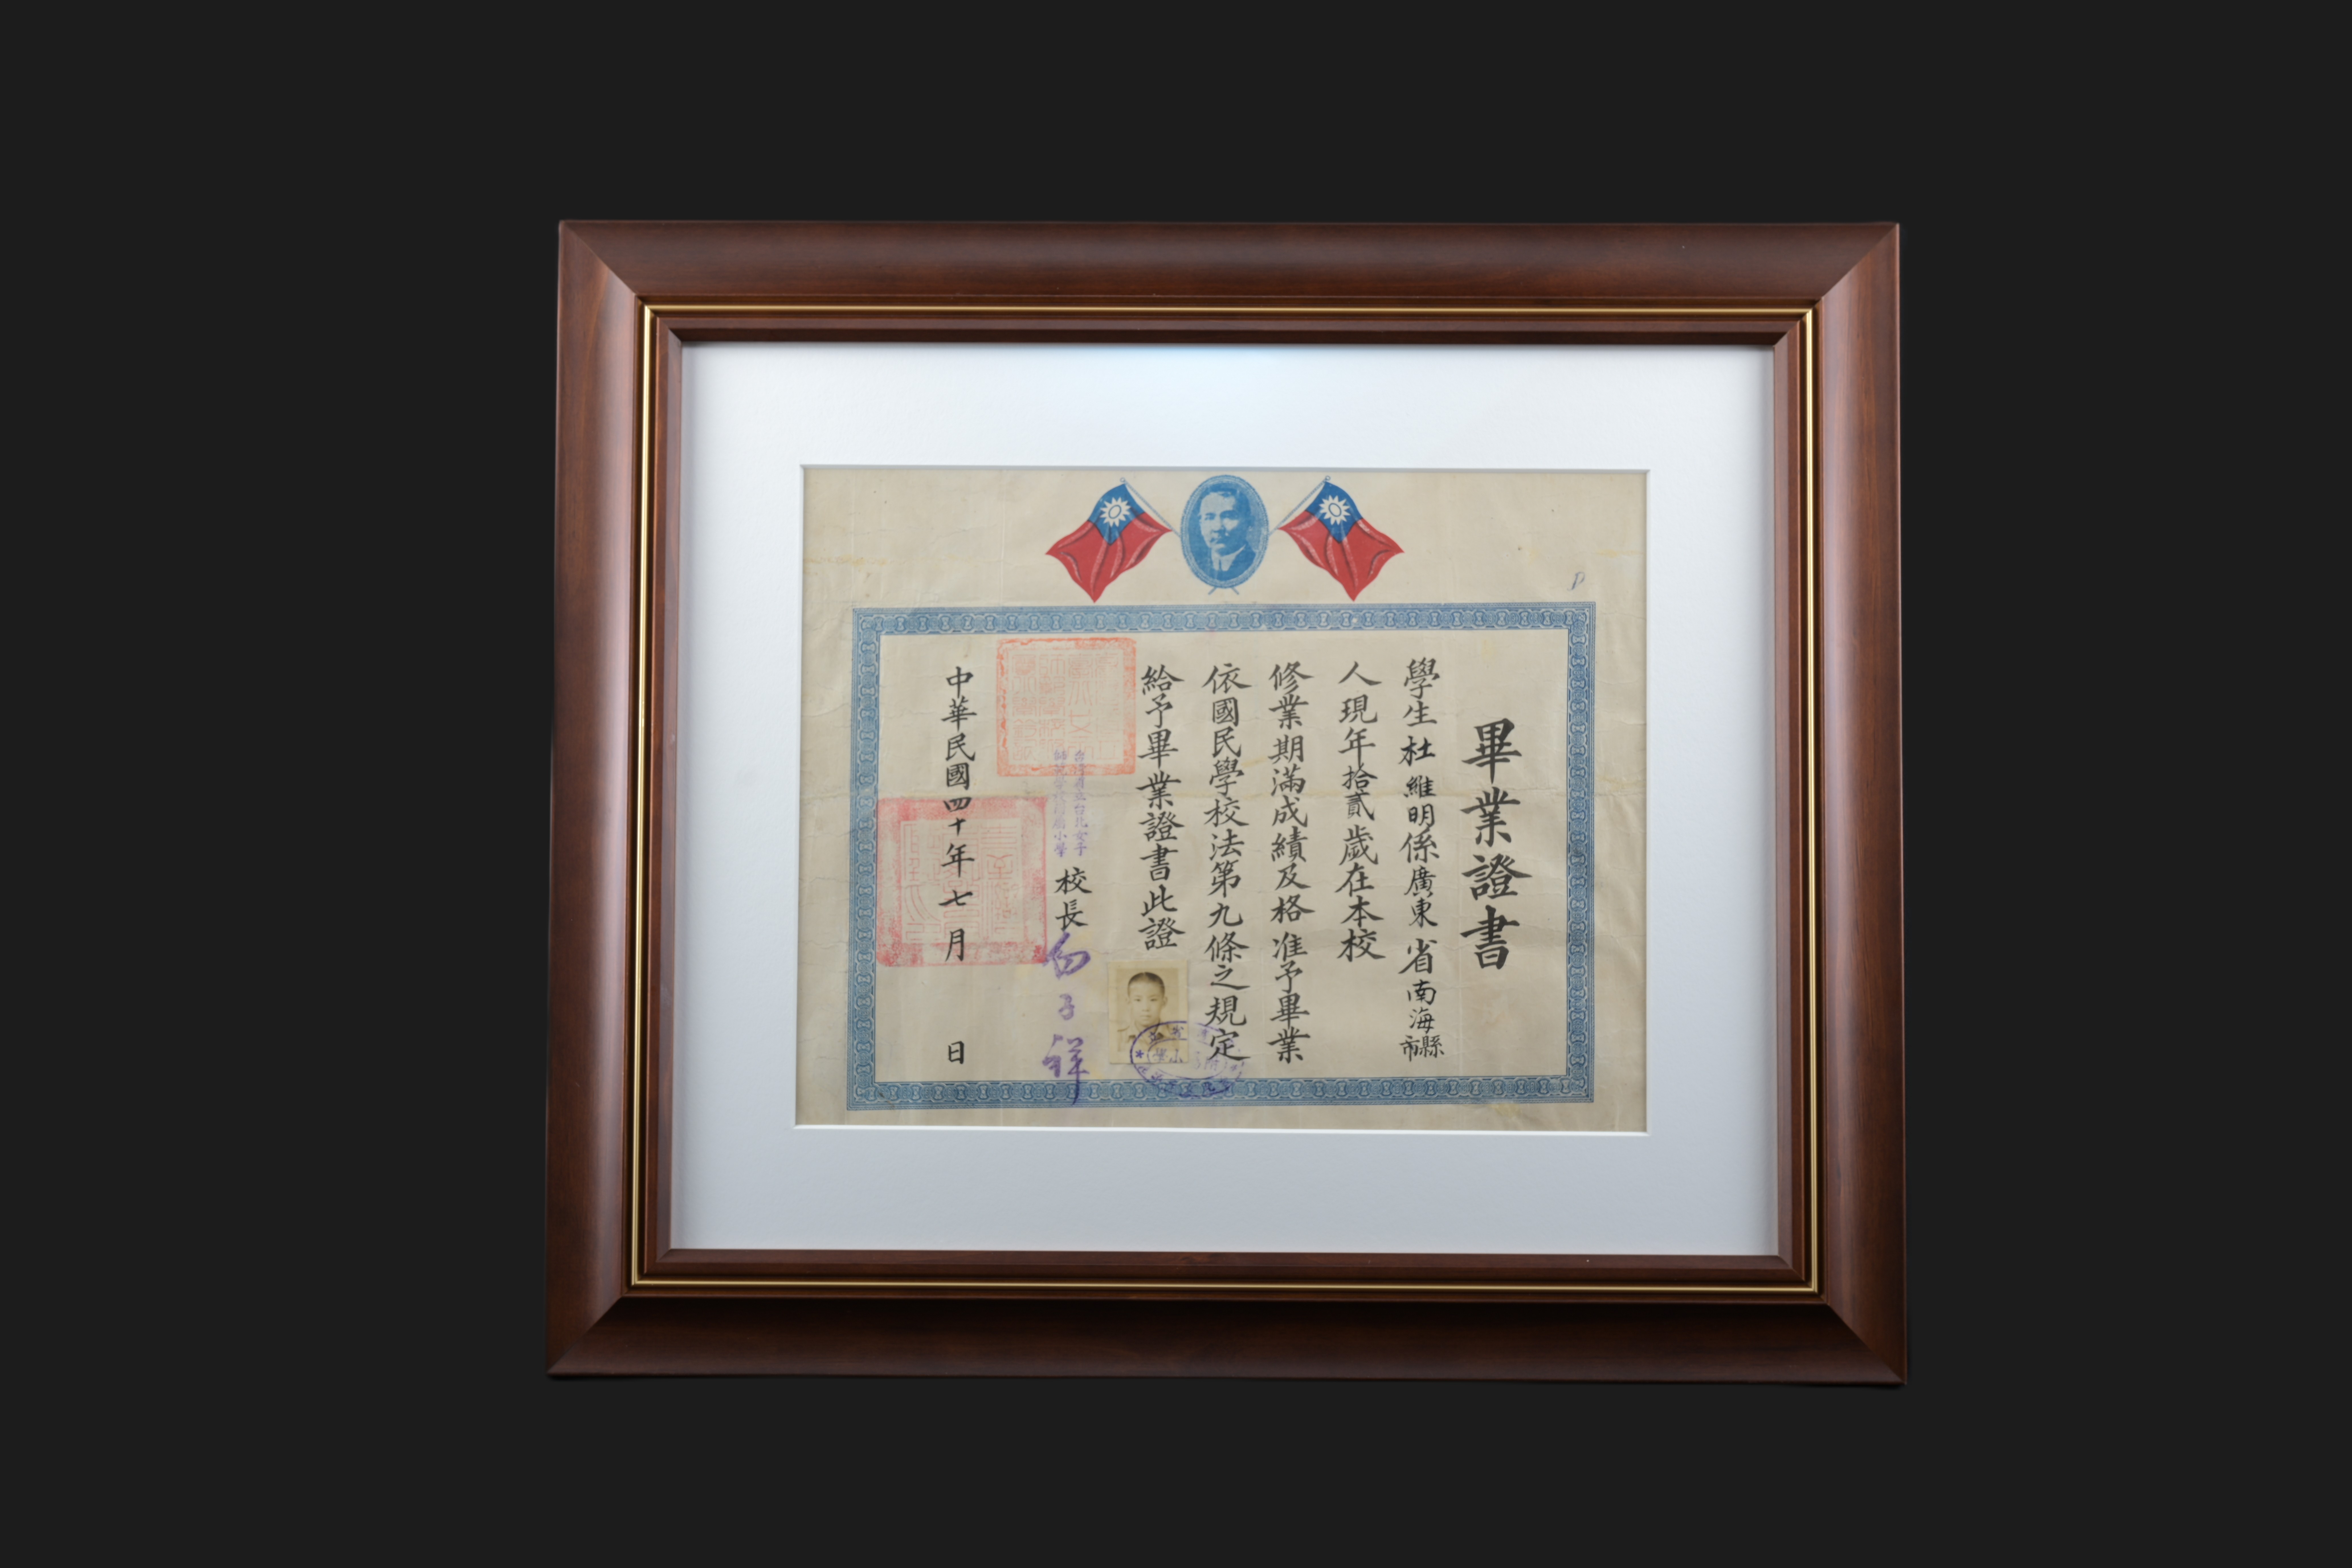 畢業證書
學生杜維明係廣東省南海縣市
人現年拾貳歲在本校
修業期滿成績及格准予畢業
依國民學校法第九條之規定
給予畢業證書此證
台灣省立台北女子
師範學校附屬小學
校長
中華民國四十年七月 日